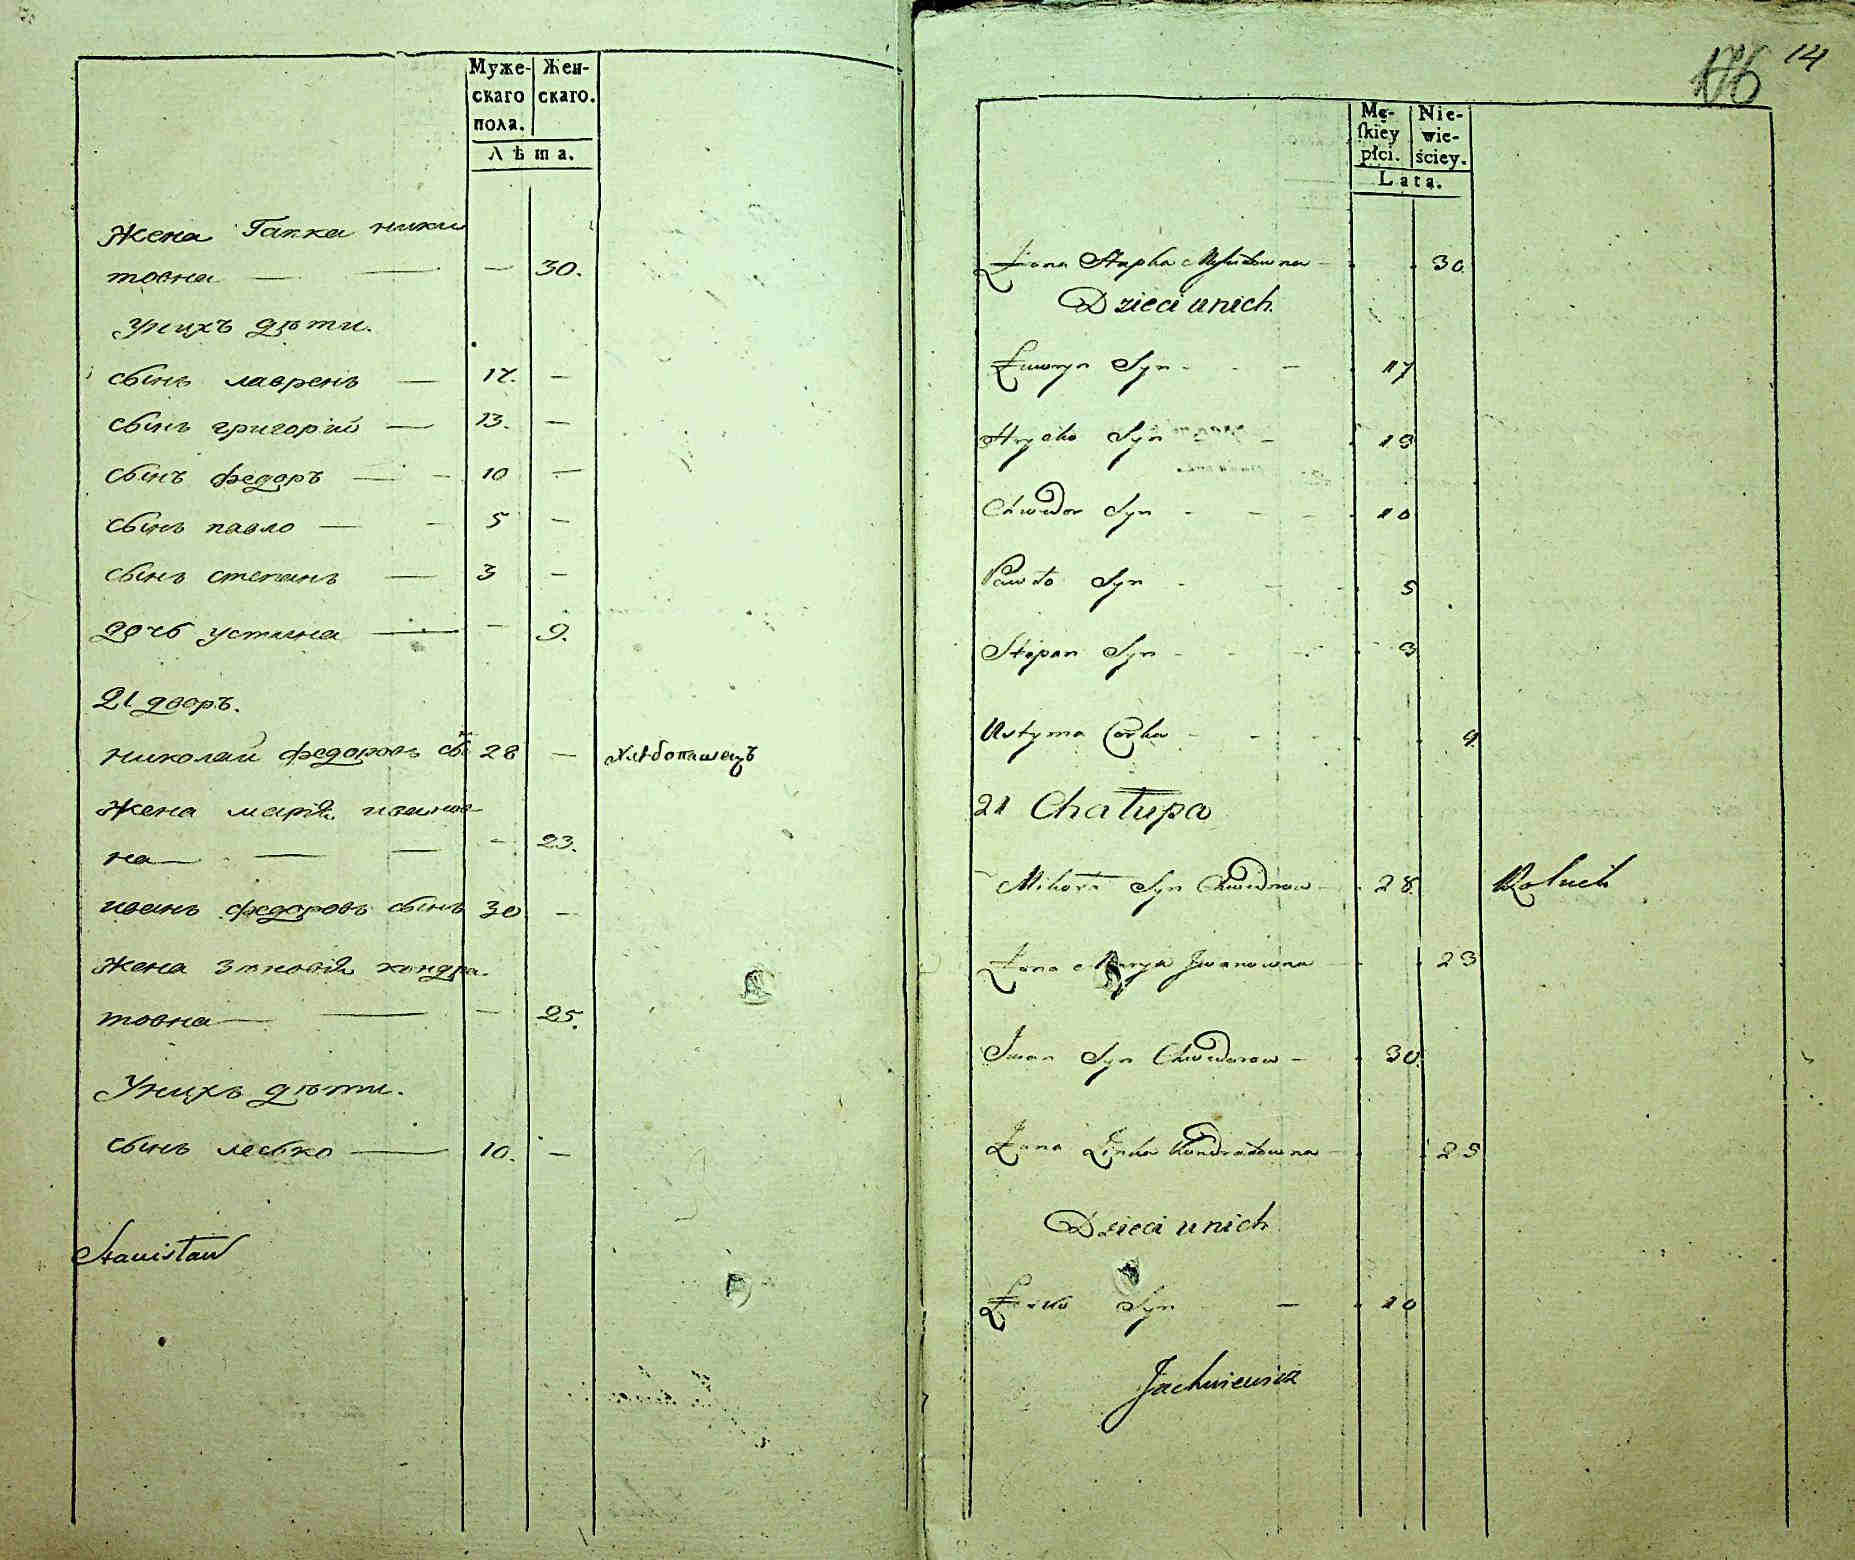 Муже-
скаго
пола.
Жен-
скаго.
Лѣта.
Жена Гапка ники
товна — — — 30.
Унихъ дѣти.
сынъ лаврень — 17. —
сынъ григорій — 13. —
сынъ федоръ — - 10 —
сынъ павло — - 5 —
сынъ степанъ — 3 —
дочь устина — — 9.
21 дворъ.
николай федоровъ сы 28 — хлѣбопашецъ
жена марія иванов
на — — — - 23.
иванъ федоровъ сынъ 30 —
жена зѣновія кондра
товна — — — 25.
Унихъ дѣти.
сынъ лесько — 10. —
Stanisław
14
176
Mę-
skiey
płci.
Nie-
wie-
ściey.
Lata.
Żona Hapka Mykitowna - 30.
Dzieci unich.
Ławryn Syn - - — 17
Hryćko Syn — 13
Chwedor Syn - - - 10
Pawło Syn - - - 5
Stepan Syn - - - 3
Ustyma Corka - - - 9.
21 Chałupa
Mikołay Syn Chwedorow - 28. Rolnik
Żona Marya Jwanowna - 23
Jwan Syn Chwedorow - 30.
Żona Zinka Kondratowna - 25
Dzieci unich
Leśko Syn — 10
Jachniewicz